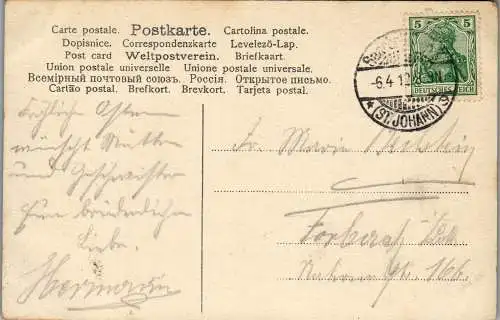 Carte postale. Postkarte. Cartolina postale.
Dopisnice. Correspondenzkarte Levelező-Lap.
Post card Weltpostverein. Briefkaart.
Union postale universelle. Unione postale universale.
Всемірный почтовый союзъ. Россія. Открытое письмо.
Cartão postal. Brefkort. Brevkort. Tarjeta postal.
5 5
DEUTSCHES REICH
-6.4.
(ST. JOHANN)
Fröhliche Ostern
wünscht Mutter
und Geschwister
Eure brüderliche
Liebe.
Hermann
Fr. Marie
Forbach